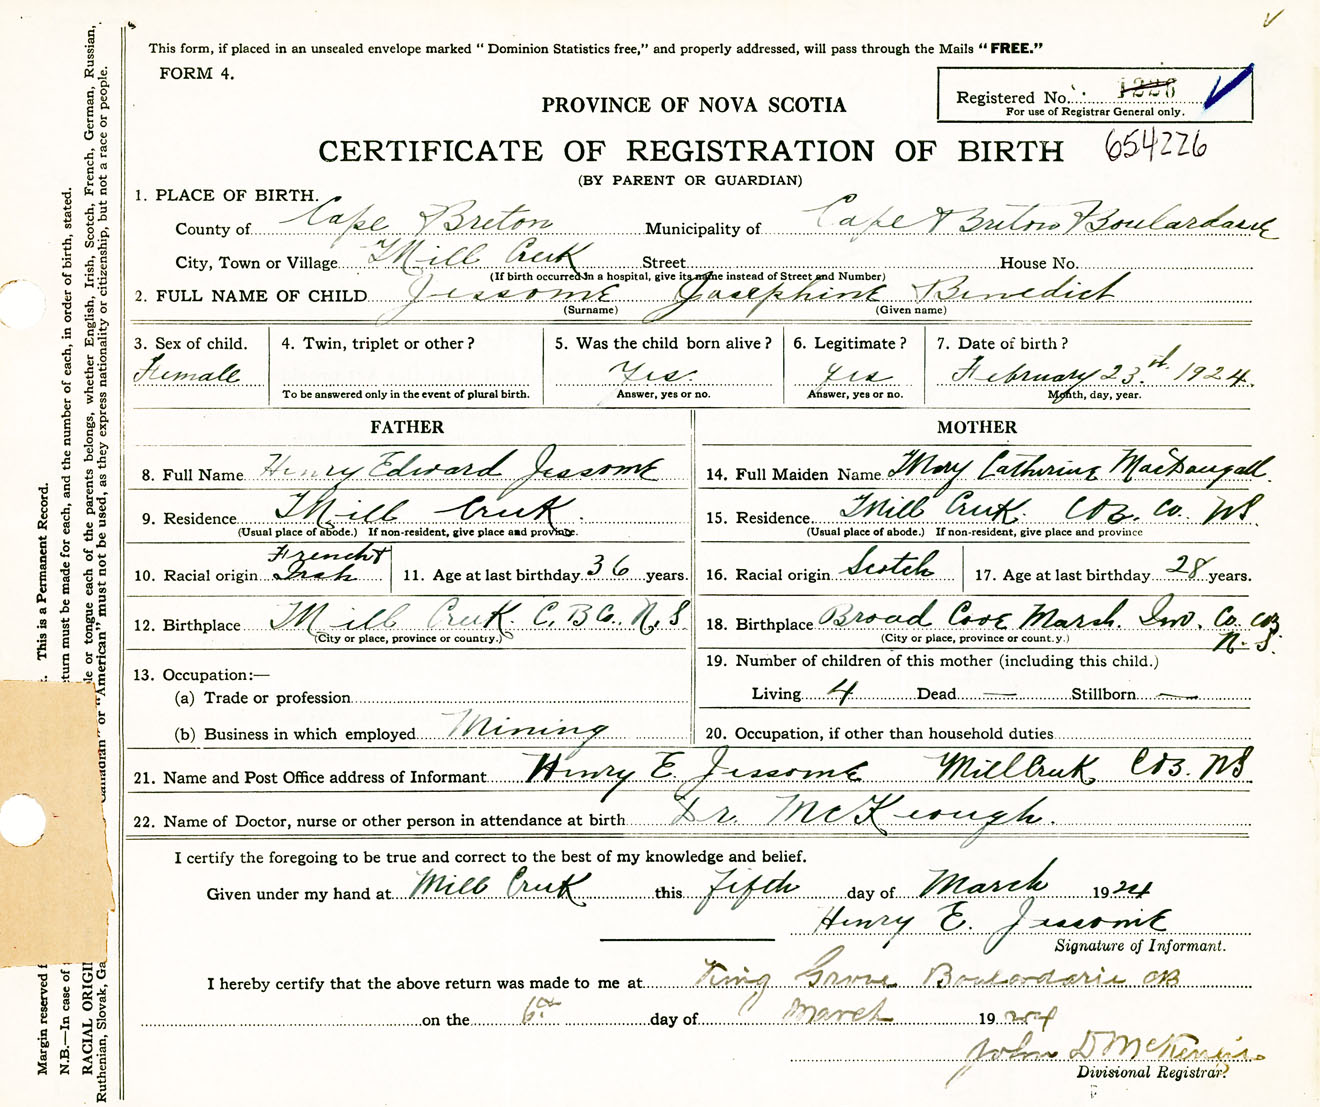 This form, if placed in an unsealed envelope marked " Dominion Statistics free," and properly addressed, will pass through the Mails "FREE."
FORM 4.
Registered No. 1226
For use of Registrar General only.
PROVINCE OF NOVA SCOTIA
CERTIFICATE OF REGISTRATION OF BIRTH 654226
(BY PARENT OR GUARDIAN)
1. PLACE OF BIRTH.
County of Cape Breton Municipality of Cape Breton Boulardarie
City, Town or Village Mill Creek Street House No.
(If birth occurred in a hospital, give its name instead of Street and Number)
2. FULL NAME OF CHILD Jessome Josephine Benedict
(Surname) (Given name)
3. Sex of child. 4. Twin, triplet or other? 5. Was the child born alive? 6. Legitimate? 7. Date of birth?
Female Yes. Yes February 23rd. 1924.
To be answered only in the event of plural birth. Answer, yes or no. Answer, yes or no. Month, day, year.
FATHER MOTHER
8. Full Name Henry Edward Jessome 14. Full Maiden Name Mary Catherine MacDougall.
9. Residence Mill Creek. 15. Residence Mill Creek. C.B. Co. N.S.
(Usual place of abode.) If non-resident, give place and province. (Usual place of abode.) If non-resident, give place and province
10. Racial origin French & Irish 11. Age at last birthday 36 years. 16. Racial origin Scotch 17. Age at last birthday 28 years.
12. Birthplace Mill Creek. C. B Co. N. S. 18. Birthplace Broad Cove Marsh. Inv. Co. CB N. S.
(City or place, province or country.) (City or place, province or count.y.)
13. Occupation:— 19. Number of children of this mother (including this child.)
(a) Trade or profession Living 4 Dead — Stillborn —
(b) Business in which employed Mining 20. Occupation, if other than household duties
21. Name and Post Office address of Informant Henry E. Jessome Mill Creek CB. NS.
22. Name of Doctor, nurse or other person in attendance at birth Dr. McKeough.
I certify the foregoing to be true and correct to the best of my knowledge and belief.
Given under my hand at Mill Creek this fifth day of March 1924
Henry E. Jessome
Signature of Informant.
I hereby certify that the above return was made to me at King Grove Boulardarie CB
on the 6th day of March 1924
John D McKenzie
Divisional Registrar.
Margin reserved f This is a Permanent Record.
N.B.—In case of eturn must be made for each, and the number of each, in order of birth, stated.
RACIAL ORIGI le or tongue each of the parents belongs, whether English, Irish, Scotch, French, German, Russian,
Ruthenian, Slovak, Ga Canadian" or "American" must not be used, as they express nationality or citizenship, but not a race or people.